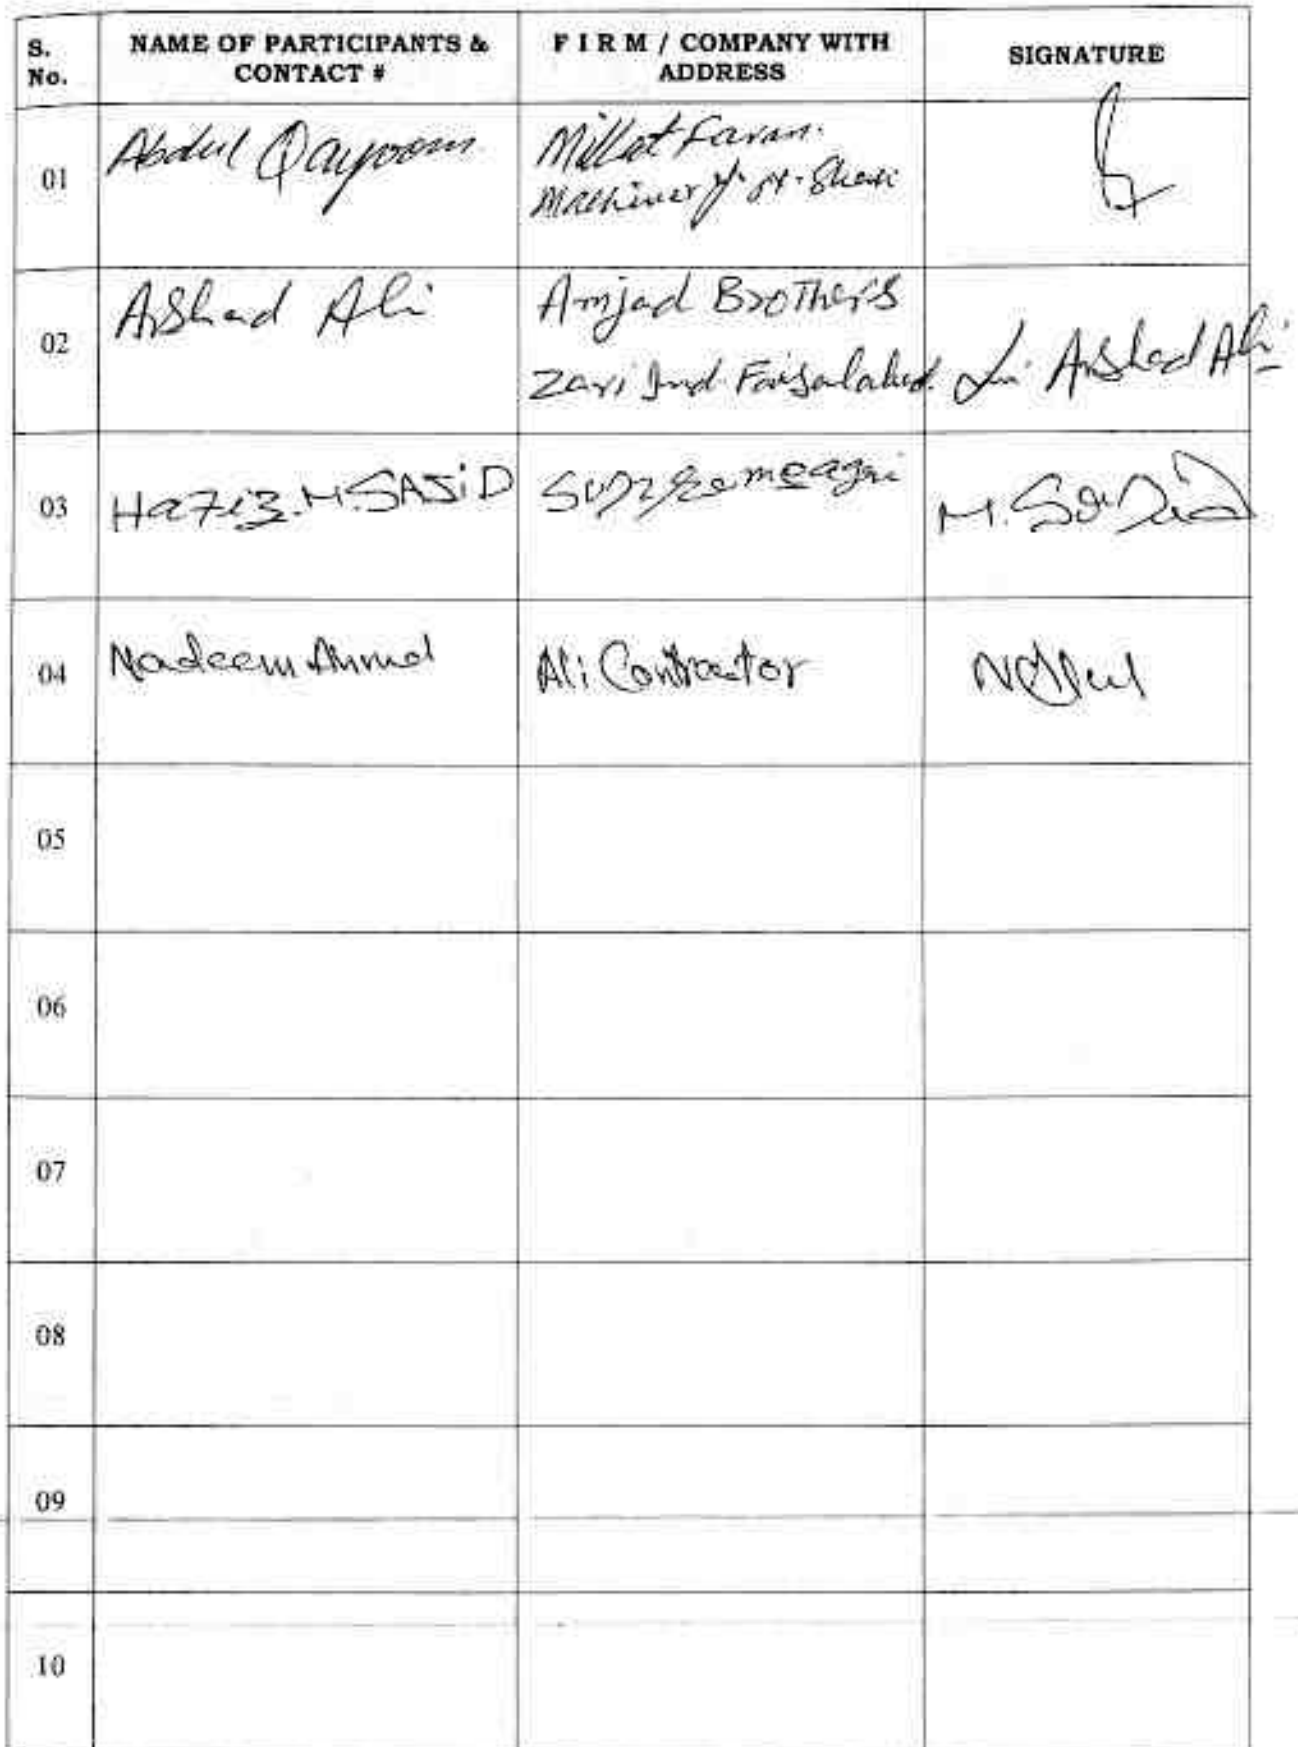 S. No.
NAME OF PARTICIPANTS & CONTACT #
F I R M / COMPANY WITH ADDRESS
SIGNATURE
01
Abdul Qayoom
Millat Farm
Machinery
02
Arshad Ali
Amjad Brothers
Zari Ind. Faisalabad.
Arshad Ali
03
Hafiz.M.SAJiD
M. Sajid
04
Nadeem Ahmed
Ali Contractor
05
06
07
08
09
10